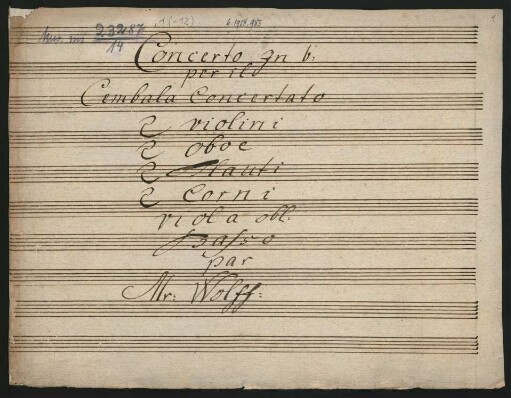 Mus. ms 23287
14
Concerto Jn b:
per il
Cembala Concertato
2 violini
2 oboe
2 Flauti
2 Corni
viola obl.
Basso
par
Mr: Wolff: